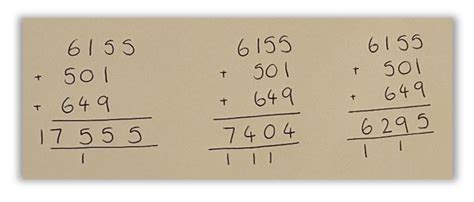 6155 6155 6155
+ 501 + 501 + 501
+ 649 + 649 + 649
17555 7404 6295
1 1 1 1 1 1